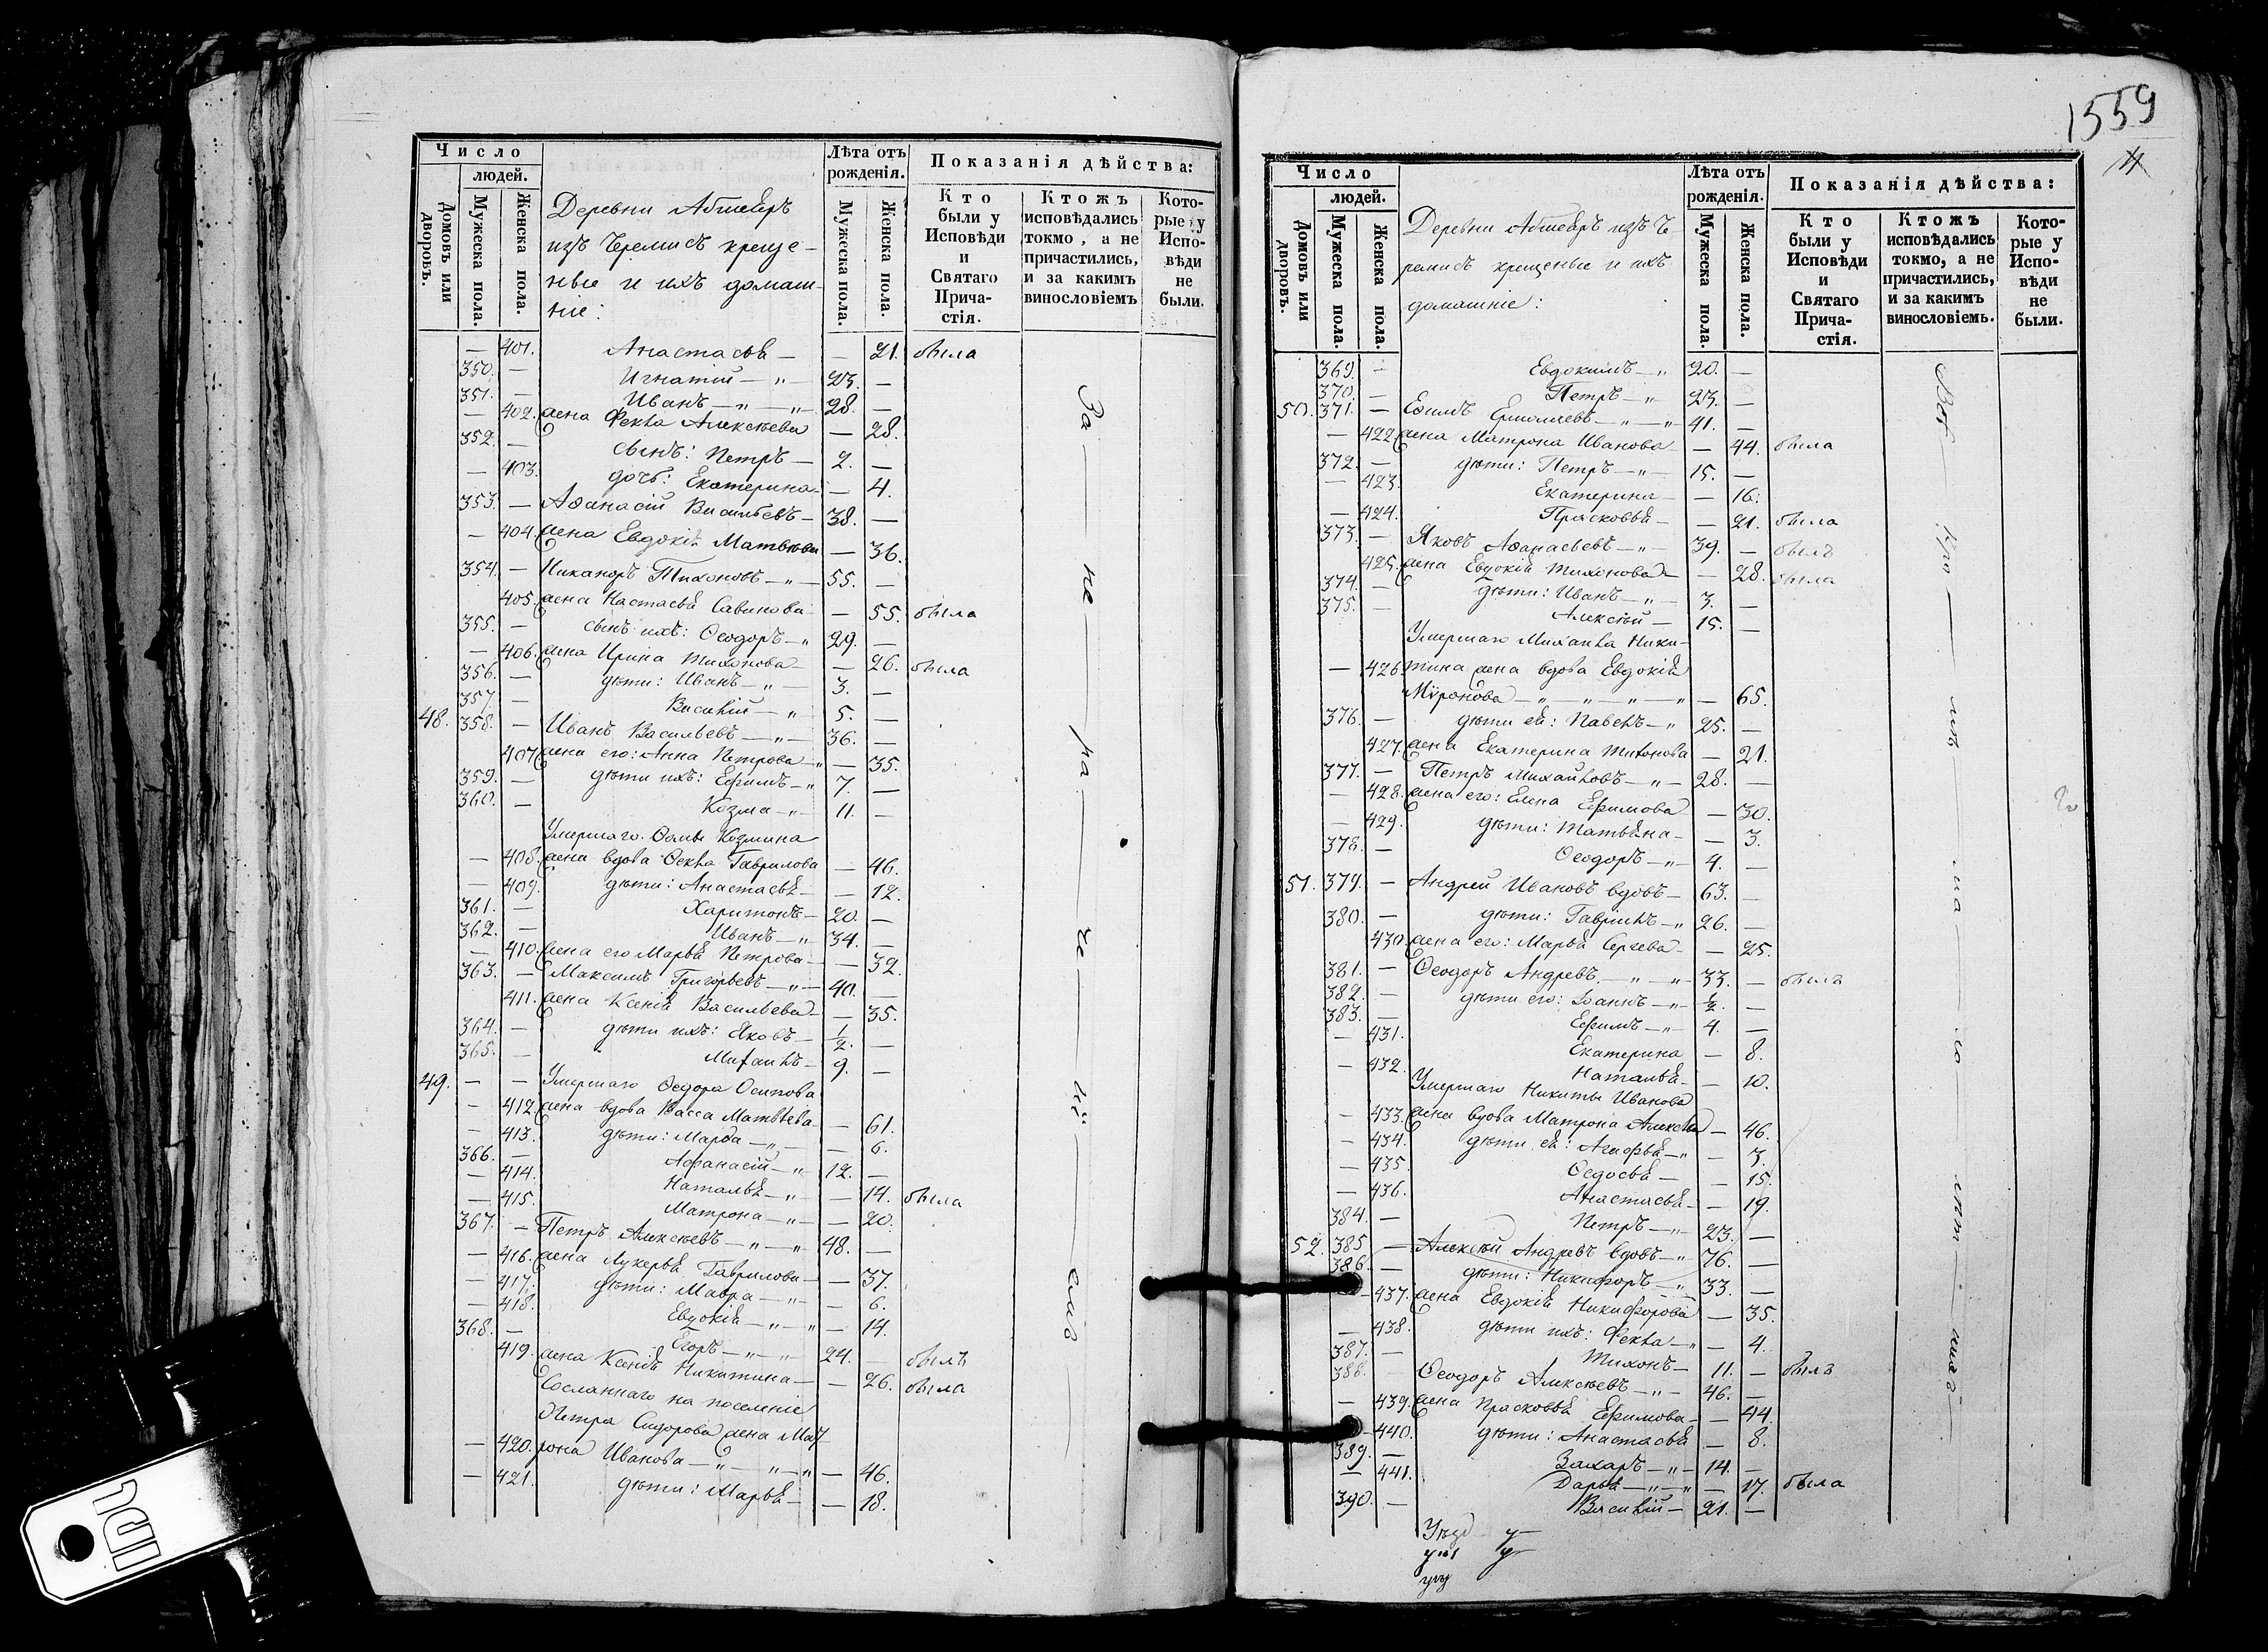 1559
Число
людей.
Домовъ или дворовъ.
Мужеска пола.
Женска пола.
Деревни
изъ Черемисъ креще-
ные и ихъ домаш-
ніе:
Лѣта отъ
рожденія.
Мужеска пола.
Женска пола.
Показанія дѣйства:
Кто
были у
Исповѣди
и
Святаго
Прича-
стія.
Ктожъ
исповѣдались
токмо, а не
причастились,
и за какимъ
винословіемъ
Кото-
рые у
Испо-
вѣди
не
были.
— 401. Анастасья — — 21. была
350. — Игнатій — „ — 23. —
351. — Иванъ — „ — „ 28. —
— 402. жена Фекла Алексѣева — 28.
352. — сынъ: Петръ — 2. —
— 403. дочь: Екатерина — — 4.
353. — Аѳанасій Васильевъ — 38. —
— 404. жена Евдокія Матвѣева — 36.
354. — Никаноръ Тихоновъ — „ — 55. —
405. жена Настасья Савинова — 55. была
355. — сынъ ихъ: Ѳеодоръ — „ 29. —
— 406. жена Ирина Тихонова — — 26. была
356. — дѣти: Иванъ — „ — 3. —
357. — Василій — „ 5. —
48. 358. — Иванъ Васильевъ — „ — 36. —
407. жена его: Анна Петрова — „ — 35.
359. — дѣти ихъ: Ефимъ — „ 7. —
360. — Козма — „ — 11. —
Умершаго Ѳомы Козмина
— 408. жена вдова Ѳекла Гаврилова — 46.
— 409. дѣти: Анастасья — — 12.
361. — Харитонъ — 20. —
362. — Иванъ — „ 34. —
— 410. жена его Марья Петрова — — 32.
363. — Максимъ Григорьевъ — „ — 40. —
411. жена Ксенія Васильева — — 35.
364. — дѣти ихъ: Яковъ — 1/2. —
365. — Михаилъ — 9. —
49. — — Умершаго Ѳедора Осипова
— 412. жена вдова Васса Матвѣева — — 61.
— 413. дѣти: Марѳа — „ — — 6.
366. — Афанасій — „ 12. —
— 414. Наталья — „ — 14. была
— 415. Матрона — „ — — 20.
367. — Петръ Алексѣевъ — „ — „ 48. —
— 416. жена Лукерья Гаврилова — — 37.
— 417. дѣти: Мавра — „ — — 6.
— 418. Евдокія — „ — „ — 14.
368. — Егоръ — „ — „ 24. — былъ
419. жена Ксенія Никитина — — 26. была
Сосланнаго на поселеніе
Петра Сидорова жена Мат-
— 420. рона Иванова — „ — „ — „ — 46.
— 421. дѣти: Марья — — 18.
За не ра че ні емъ
Число
людей.
Домовъ или дворовъ.
Мужеска пола.
Женска пола.
Деревни изъ Че-
ремисъ крещеные и ихъ
домашніе:
Лѣта отъ
рожденія.
Мужеска пола.
Женска пола.
Показанія дѣйства:
Кто
были у
Исповѣди
и
Святаго
Прича-
стія.
Ктожъ
исповѣдались
токмо, а не
причастились,
и за какимъ
винословіемъ.
Кото-
рые у
Испо-
вѣди
не
были.
369. — Евдокимъ — „ 20. —
370. — Петръ — „ 23. —
50. 371. — Ефимъ Ермолаевъ — „ — „ 41. —
— 422. жена Матрона Иванова — — 44. была
372. — дѣти: Петръ — „ — 15. —
— 423. Екатерина — — 16.
— 424. Прасковья — — 21. была
373. — Яковъ Аѳанасьевъ — „ — 39. — былъ
425. жена Евдокія Тихонова — — 28. была
374. — дѣти: Иванъ — „ — 3. —
375. — Алексѣй — 15. —
Умершаго Михаила Ники-
— 426. тина жена вдова Евдокія
Миронова — „ — „ — „ — „ — 65.
376. — дѣти ея: Павелъ — „ 25. —
427. жена Екатерина Тихонова — 21.
377. — Петръ Михайловъ — „ — 28. —
— 428. жена его: Елена Ефимова — 30.
— 429. дѣти: Татьяна — — 3.
378. — Ѳеодоръ — „ — 4. —
51. 379. — Андрей Ивановъ вдовъ — 63. —
380. — дѣти: Гавріилъ — „ 26. —
430. жена его: Марья Сергева — — 25.
381. — Ѳеодоръ Андревъ — „ — „ 33. — былъ
382. — дѣти его: Іоаннъ — „ 1/2. —
383. — Ефимъ — „ 4. —
— 431. Екатерина — 8.
— 432. Наталья — — 10.
Умершаго Никиты Иванова
— 433. жена вдова Матрона — 46.
— 434. дѣти ея: Агафья — „ — 3.
— 435. Ѳедосья — — 15.
— 436. Анастасья — — 19.
384. — Петръ — „ 23. —
52. 385. — Алексѣй Андревъ вдовъ — „ 76. —
386. — дѣти: Никифоръ — „ 33. —
— 437. жена Евдокія Никифорова — 35.
— 438. дѣти ихъ: Фекла — „ — 4.
387. — Тихонъ — 11. — былъ
388. Ѳеодоръ Алексѣевъ — „ — 46. —
— 439. жена Прасковья Ефимова — — 44.
— 440. дѣти: Анастасья — 8.
389. — Захаръ — „ — 14. —
— 441. Дарья — „ — „ — 17. была
390. — Василій — 21. —